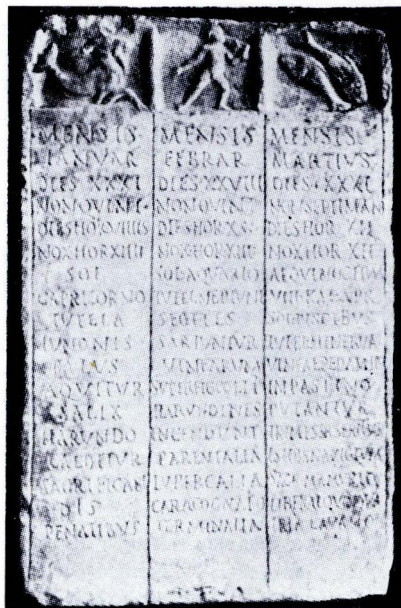 MENSIS
IANVAR
DIES XXXI
NON QVINT
DIES HOR VIIII S
NOX HOR XIIII
SOL
CAPRICORNO
TVTELA
IVNONIS
PALVS
AQVITVR
SALIX
HARVNDO
CAEDITVR
SACRIFICAN
DIS
PENATIBVS
MENSIS
FEBRAR
DIES XXVIII
NON QVINT
DIES HOR X S
NOX HOR XIII
SOL AQVARIO
TVTEL NEPTVNI
SEGETES
SARIVNTVR
VINEARVM
HARVNDINES
INCENDVNT
PARENTALIA
LVPERCALIA
CARA COGNATIO
TERMINALIA
MENSIS
MARTIVS
DIES XXXI
NON SEPTIMAN
DIES HOR XII
NOX HOR XII
AEQVINOCTIVM
VIII KAL APR
SOL PISCIBVS
TVTEL MINERVAE
IN PASTINO
PVTANTVR
ISIDIS NAVIGIVM
SACR MAMVRIO
TRIA LAVATIO